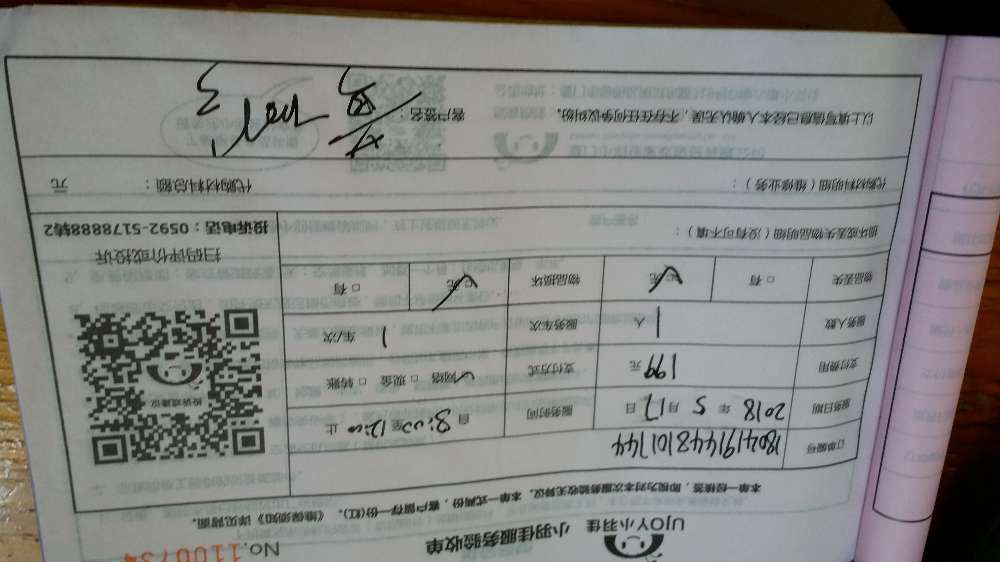 UJOY小羽佳
小羽佳服务验收单
No.1100734
本单一经核签，即视为对本次服务验收无异议。本单一式两份，客户留存一份(红)。《维保须知》详见背面。
订单编号 18041916448101744
服务日期 2018 年 5 月 17 日 服务时间 自 8:00 至 12:00 止
支付费用 199 元 支付方式 ☑ 网络 □ 现金 □ 转账
服务人数 1 人 服务车次 1 车/次
物品丢失 □ 有 ☑ 无 物品损坏 ☑ 无 □ 有
投诉或建议
扫码评价或投诉
投诉电话：0592-5178888转2
损坏或丢失物品明细（没有可不填）：
代购材料明细（维修业务）： 代购材料总额： 元
以上填写信息已经本人确认无误，不存在任何争议纠纷。 客户签名：